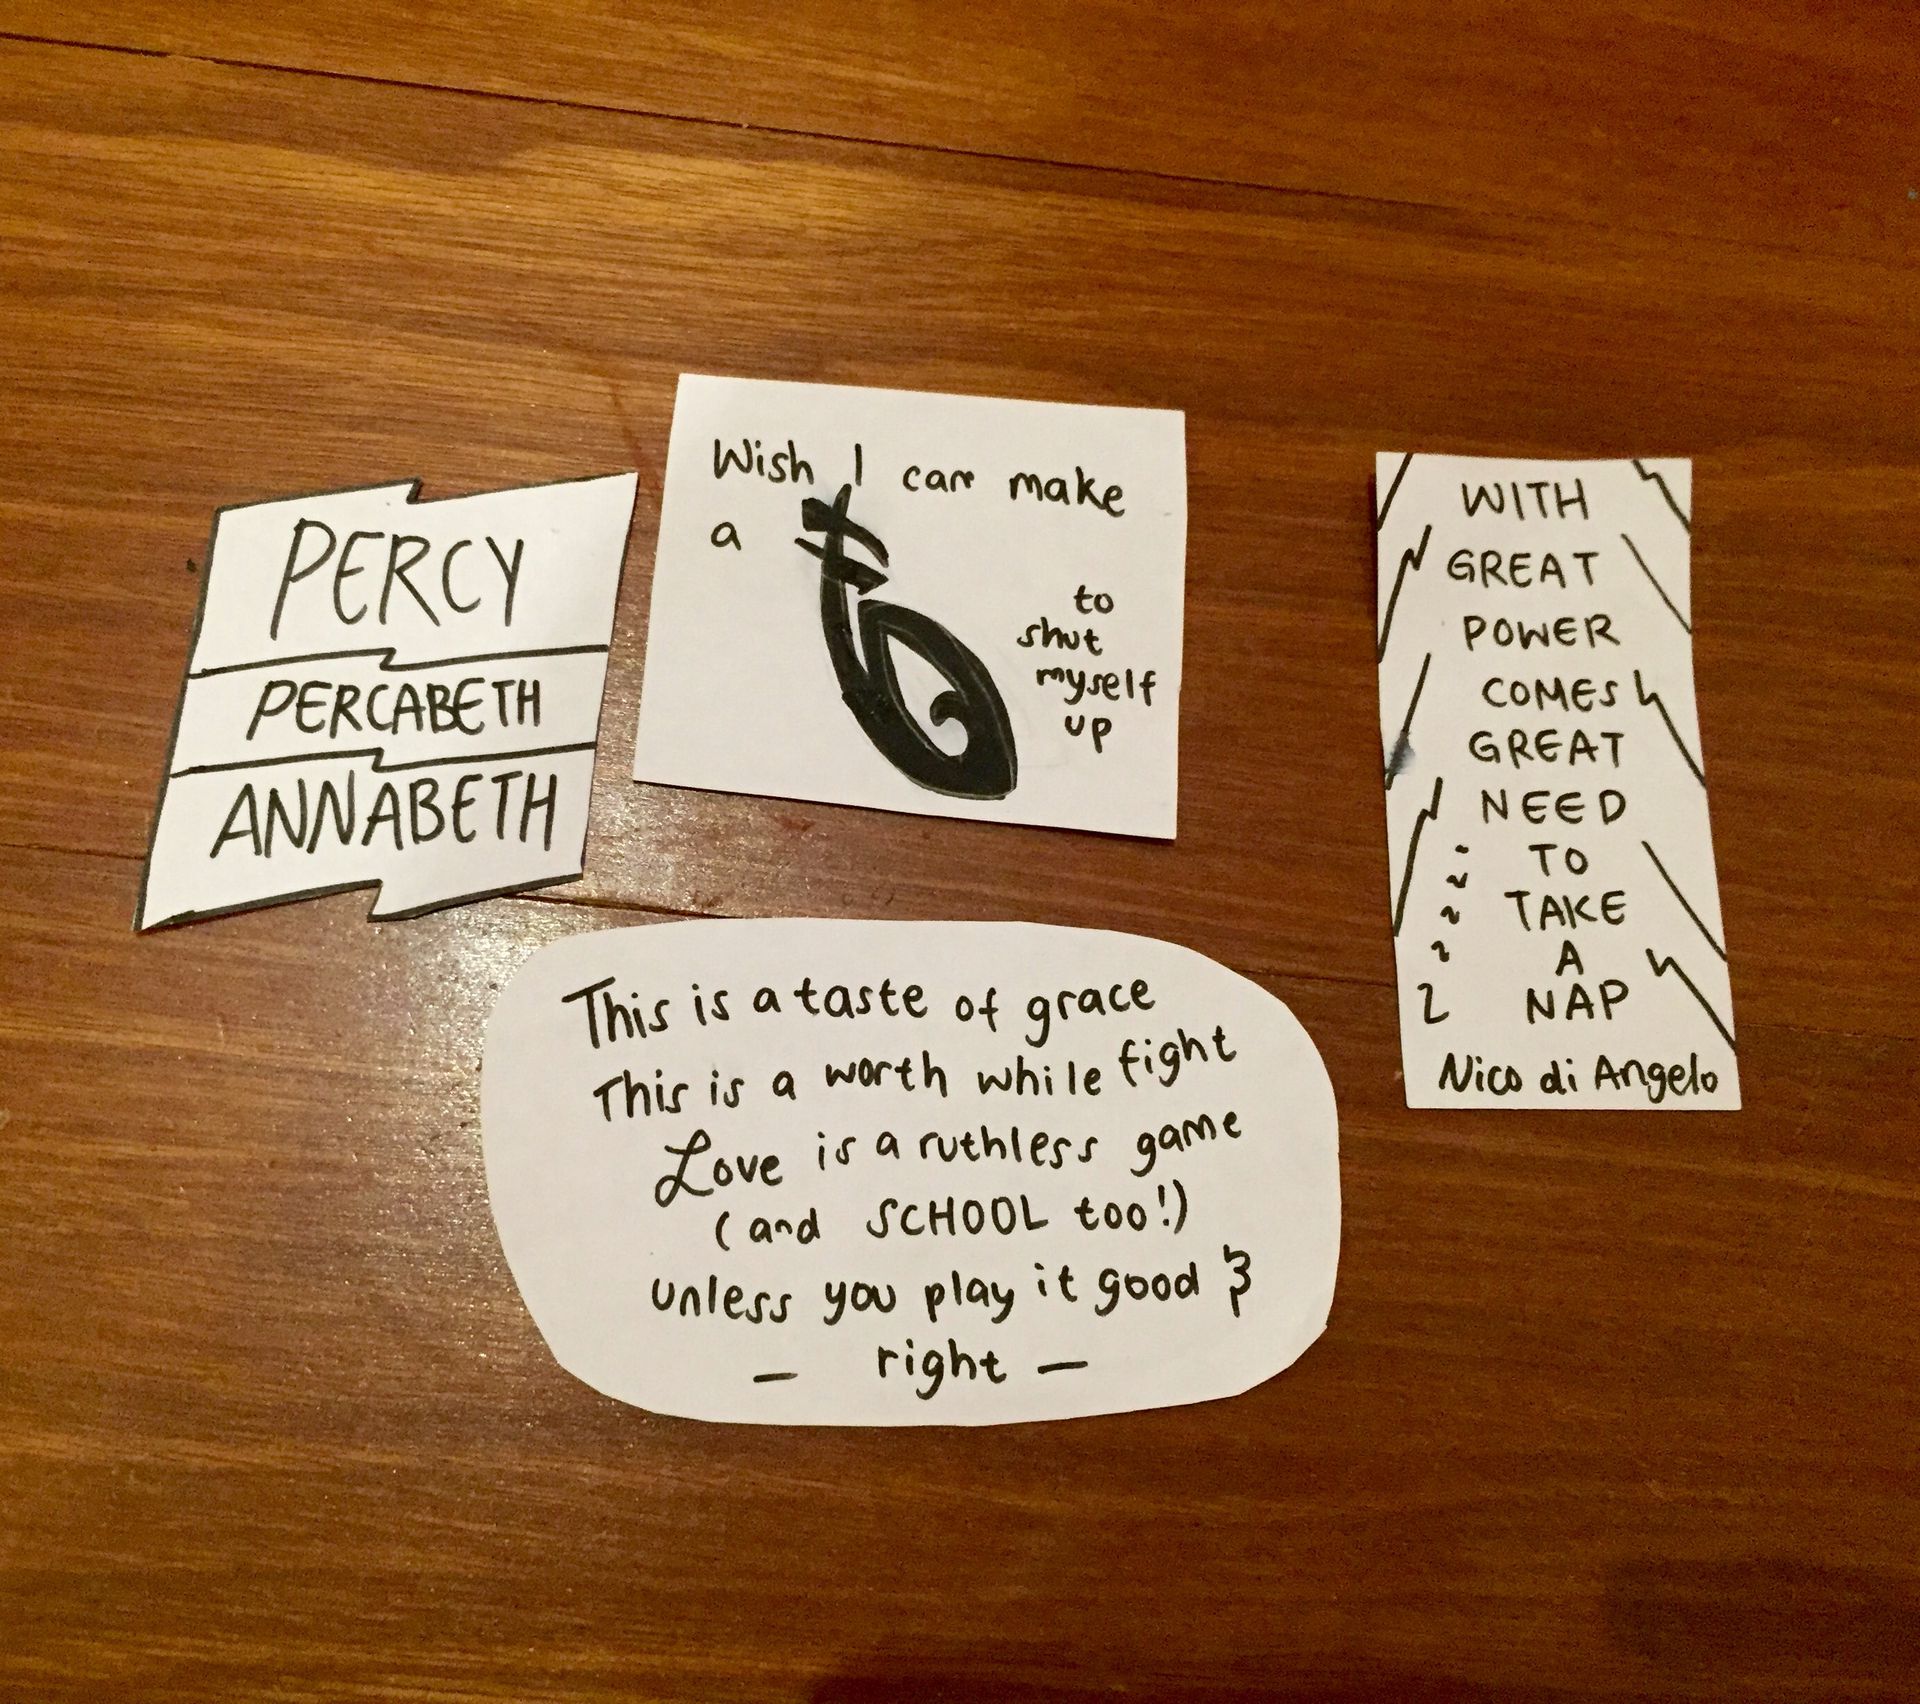 PERCY
PERCABETH
ANNABETH
Wish I can make
a
to
shut
myself
up
WITH
GREAT
POWER
COMES
GREAT
NEED
TO
TAKE
A
NAP
Nico di Angelo
This is a taste of grace
This is a worth while fight
Love is a ruthless game
(and SCHOOL too!)
unless you play it good &
— right —